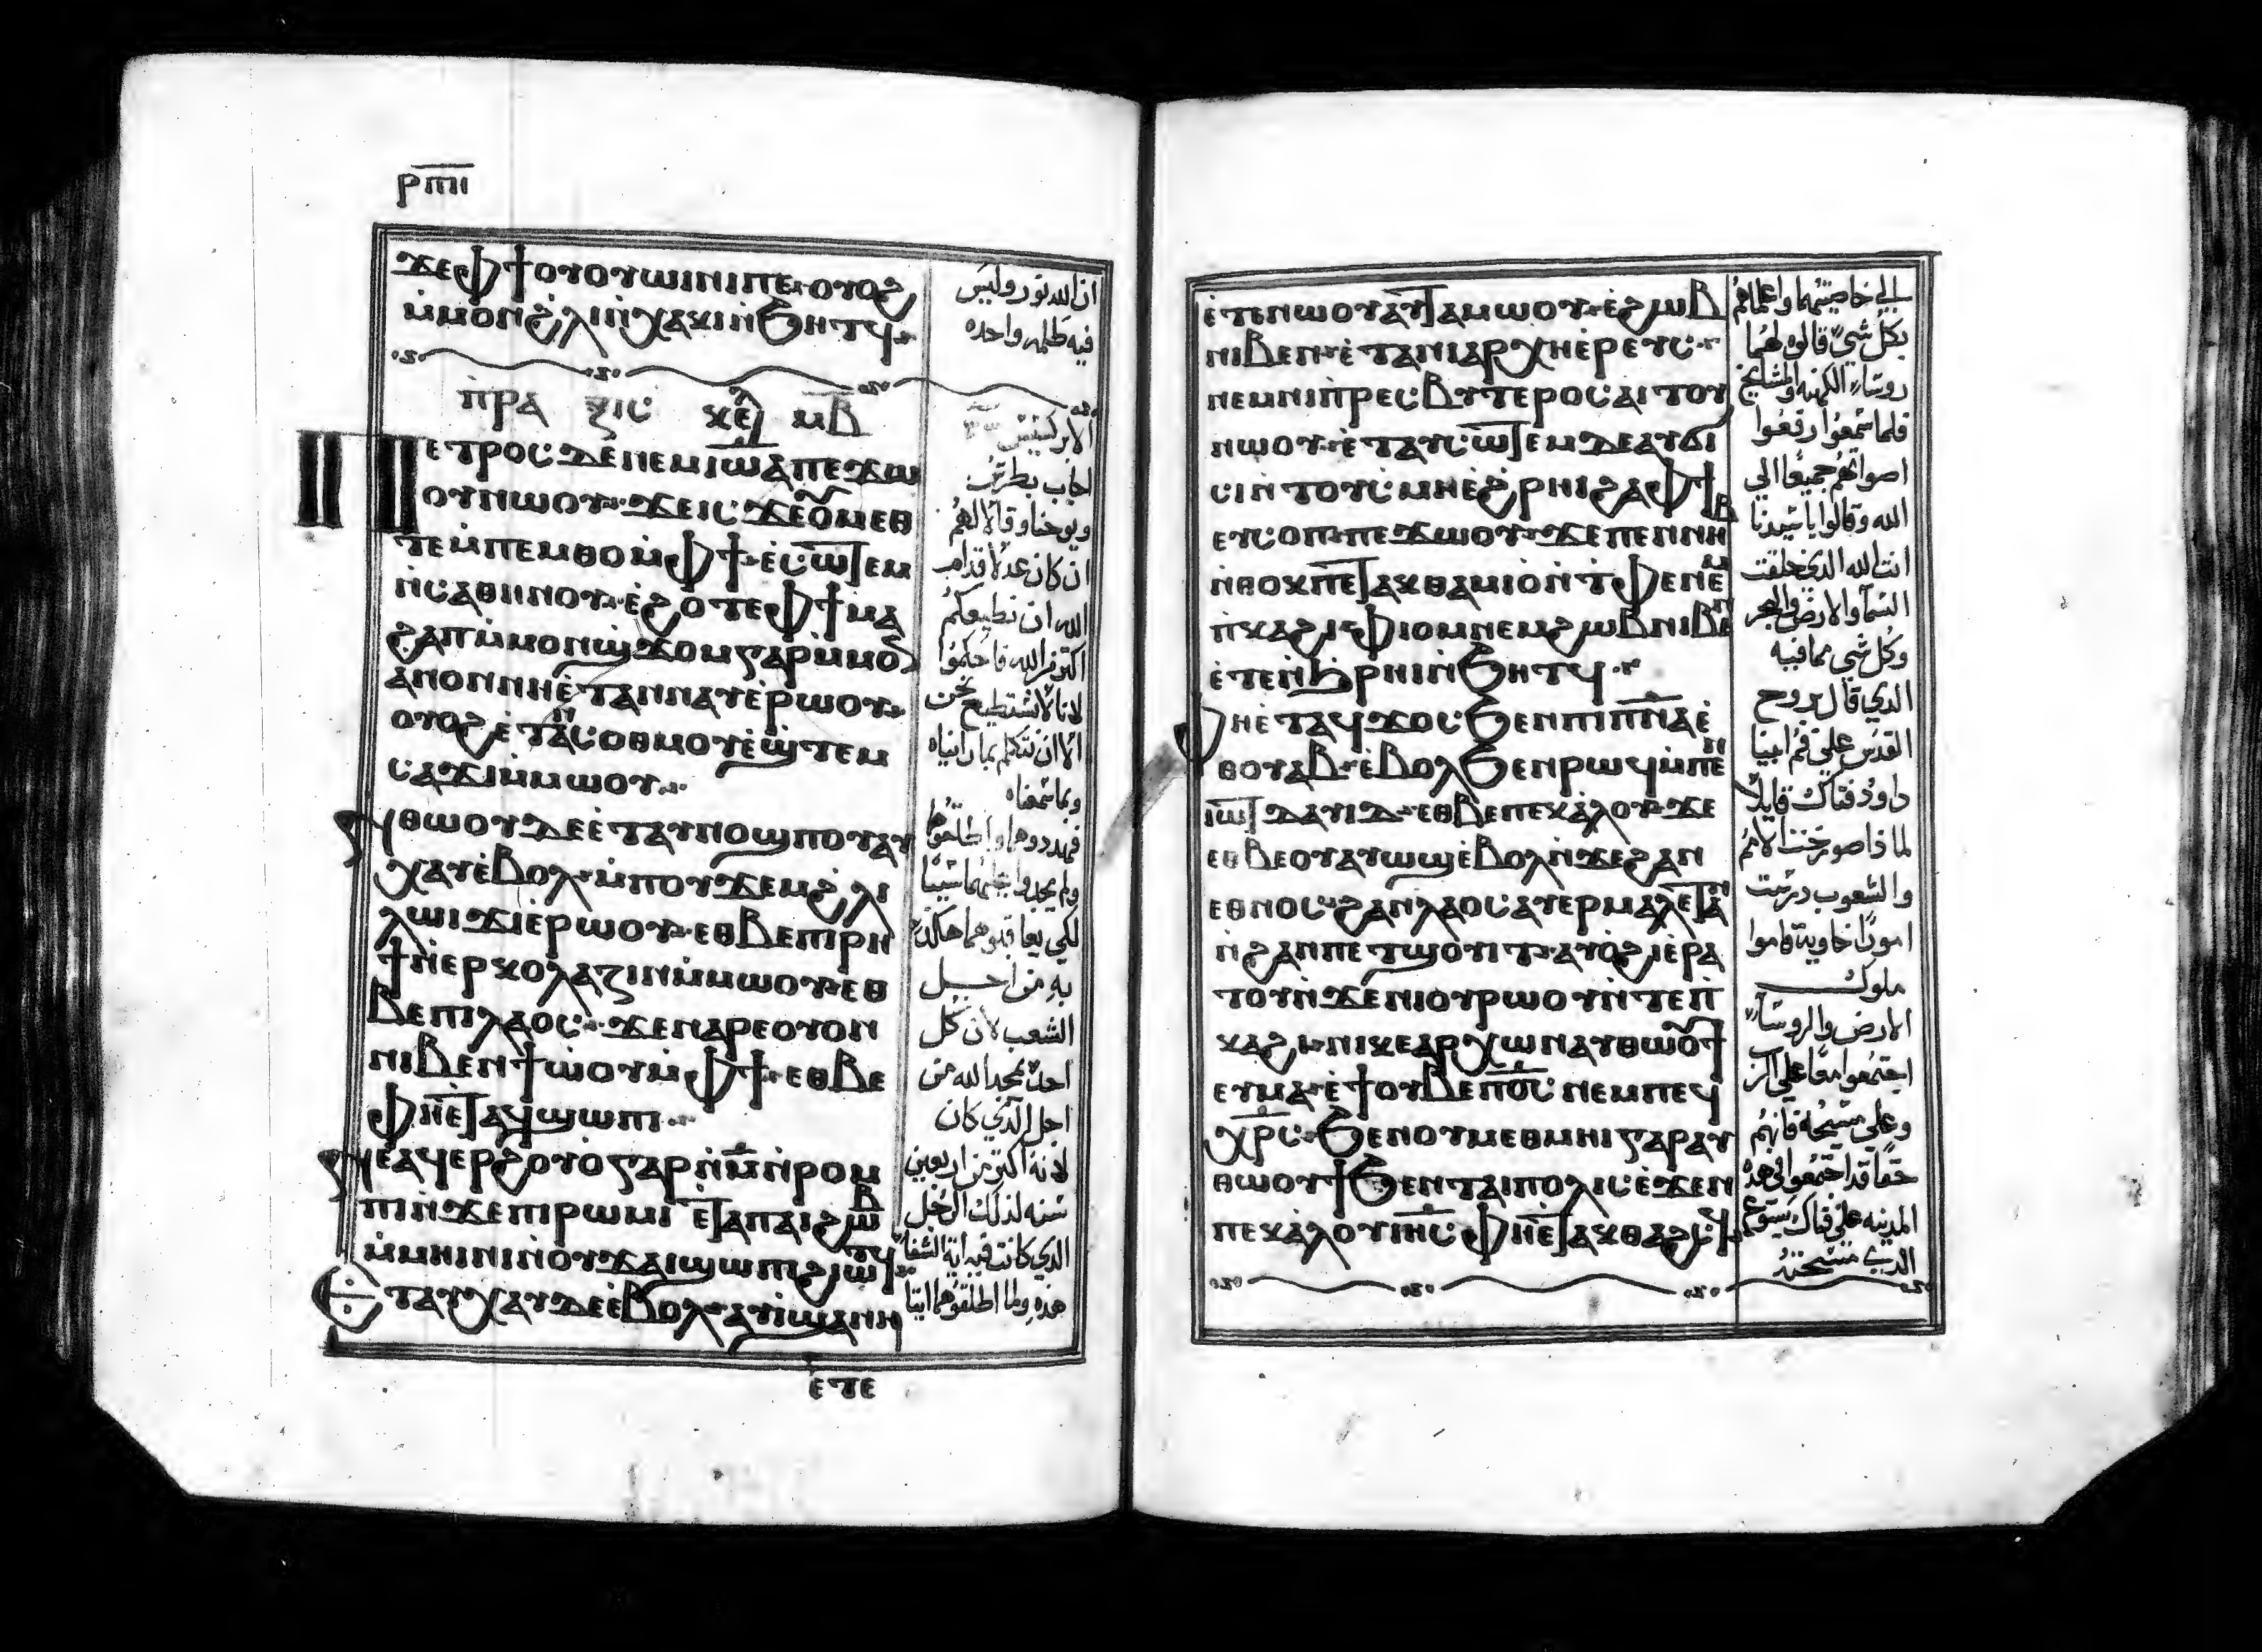 ⲣⲡⲏ
ϫⲉⲫϯⲟⲩⲟⲩⲱⲓⲛⲓⲡⲉ·ⲟⲩⲟϩ
ⲙ̀ⲙⲟⲛϩⲗⲓⲛ̀ⲭⲁⲕⲓⲛ̀ϧⲏⲧϥ·
ⲡ̀ⲣⲁⲝⲓⲥ ⲕⲉⲫ ⲙⲃ
ⲡⲉⲧⲣⲟⲥⲇⲉⲛⲉⲙⲓⲱ̅ⲁ̅ⲡⲉϫⲱ
ⲟⲩⲛⲱⲟⲩ·ϫⲉⲓⲥϫⲉⲟ̀ⲙⲉⲑ
ⲧⲉⲙ̀ⲡⲉⲙⲑⲟⲙ̀ⲫϯ·ⲉ̀ⲥⲱⲧⲉⲙ
ⲛ̀ⲥⲁⲑⲏⲛⲟⲩ·ⲉ̀ϩⲟⲧⲉⲫϯⲙⲁ
ϩⲁⲡⲙ̀ⲙⲟⲛϣϫⲟⲙⲅⲁⲣⲙ̀ⲙⲟ
ⲁ̀ⲛⲟⲛⲛⲏⲉ̀ⲧⲁⲛⲛⲁⲩⲉ̀ⲣⲱⲟⲩ·
ⲟⲩⲟϩⲉ̀ⲧⲁⲛⲥⲟⲑⲙⲟⲩⲉ̀ϣⲧⲉⲙ
ⲥⲁϫⲓⲙ̀ⲙⲱⲟⲩ·
ⲛⲑⲱⲟⲩⲇⲉⲉ̀ⲧⲁⲩⲛⲟϣⲡⲟⲩⲁⲩ
ⲭⲁⲩⲉ̀ⲃⲟⲗ·ⲙ̀ⲡⲟⲩϫⲉⲙϩⲗⲓ
ⲗⲱⲓϫⲓⲉ̀ⲣⲱⲟⲩ·ⲉⲑⲃⲉⲡⲓⲣⲏ
ϯⲛ̀ⲉⲣⲕⲟⲗⲁⲍⲓⲛⲙ̀ⲙⲱⲟⲩ·ⲉⲑ
ⲃⲉⲡⲓⲗⲁⲟⲥ·ϫⲉⲛⲁⲣⲉⲟⲩⲟⲛ
ⲛⲓⲃⲉⲛϯⲱ̀ⲟⲩⲙ̀ⲫϯ·ⲉⲑⲃⲉ
ⲫⲏⲉ̀ⲧⲁϥϣⲱⲡⲓ·
ⲛⲉⲁϥⲉⲣϩⲟⲩⲟⲅⲁⲣⲛ̀ⲙ̅ⲛ̀ⲣⲟⲙ
ⲡⲓⲛ̀ϫⲉⲡⲓⲣⲱⲙⲓ ⲉ̀ⲧⲁⲡⲁⲓϩⲱⲃ
ⲙ̀ⲙⲏⲓⲛⲓⲛ̀ⲟⲩϫⲁⲓϣⲱⲡⲓϩⲓⲱⲧϥ
ⲉⲧⲁⲩⲭⲁⲩⲇⲉⲉ̀ⲃⲟⲗ·ⲁⲩⲓ̀ϣⲁⲛⲏ
ⲉ̀ⲧⲉ
ان الله نور وليس
فيه ظلمه واحده
الابركسيس
اجاب بطرس
ويوحنا وقالا لهم
ان كان عدلا قدام
الله ان نطيعكم
اكثر من الله فاحكموا
لاننا لا نستطيع نحن
الا ان نتكلم بما راينا
وبما سمعناه
فهددوهما واطلقوهما
ولم يجدوا عليهما شيا
لكي يعاقبوهما هاكذا
به من اجل
الشعب لان كل
احد يمجد الله من
اجل الذي كان
لانه اكثر من اربعين
سنه لذلك الرجل
الذي كانت فيه اية الشفا
هذه ولما اطلقوهما اتيا
ⲉ̀ⲧⲉⲛⲱⲟⲩⲁⲩⲧⲁⲙⲱⲟⲩ·ⲉ̀ϩⲱⲃ
ⲛⲓⲃⲉⲛ·ⲉ̀ⲧⲁⲛⲓⲁⲣⲭⲏⲉ̀ⲣⲉⲩⲥ·
ⲛⲉⲙⲛⲓⲡ̀ⲣⲉⲥⲃⲩⲧⲉⲣⲟⲥⲁ̀ⲓⲧⲟⲩ
ⲛⲱⲟⲩ·ⲉ̀ⲧⲁⲩⲥⲱⲧⲉⲙⲇⲉⲁⲩϭⲓ
ⲥⲓⲛ̀ⲧⲟⲩⲥⲙⲏⲉ̀ϩⲣⲏⲓϩⲁⲫϯ
ⲉⲩⲥⲟⲡ·ⲡⲉϫⲱⲟⲩ·ϫⲉⲡⲉⲛⲛⲏⲃ
ⲛ̀ⲑⲟⲕⲡⲉⲧⲁⲕⲑⲁⲙⲓⲟⲛ̀ⲧ̀ⲫⲉⲛⲉⲙ
ⲡ̀ⲕⲁϩⲓ·ⲫⲓⲟⲙⲛⲉⲙϩⲱⲃⲛⲓⲃⲉⲛ
ⲉ̀ⲧⲉⲛ̀ϧⲣⲏⲓⲛ̀ϧⲏⲧϥ·
ⲫⲏⲉ̀ⲧⲁϥϫⲟⲥϧⲉⲛⲡⲓⲡ̅ⲛ̅ⲁⲉ̀
ⲑⲟⲩⲁⲃ·ⲉ̀ⲃⲟⲗϧⲉⲛⲣⲱϥⲙ̀ⲡⲉⲛ
ⲓⲱⲧ ⲇⲁⲩⲓⲇ·ⲉⲑⲃⲉⲡⲉⲕⲁ̀ⲗⲟⲩ·ϫⲉ
ⲉⲑⲃⲉⲟⲩⲁⲩⲱϣⲉ̀ⲃⲟⲗⲛ̀ϫⲉϩⲁⲛ
ⲉⲑⲛⲟⲥ·ϩⲁⲛⲗⲁⲟⲥⲁⲩⲉⲣⲙⲁⲗⲉⲧⲁⲛ
ⲛ̀ϩⲁⲛⲡⲉⲧϣⲟⲩⲓⲧ·ⲁⲩⲟ̀ϩⲓⲉ̀ⲣⲁ
ⲧⲟⲩⲛ̀ϫⲉⲛⲓⲟⲩⲣⲱⲟⲩⲛ̀ⲧⲉⲡ
ⲕⲁϩⲓ·ⲛⲓⲕⲉⲁⲣⲭⲱⲛⲁⲩⲑⲱⲟⲩϯ
ⲉⲩⲙⲁ·ⲉ̀ϯⲟⲩⲃⲉⲡⲟ̅ⲥ̅ⲛⲉⲙⲡⲉϥ
ⲭⲣ̅ⲥ·ϧⲉⲛⲟⲩⲙⲉⲑⲙⲏⲓⲅⲁⲣⲁⲩ
ⲑⲱⲟⲩϯϧⲉⲛⲧⲁⲓⲡⲟⲗⲓⲥⲉ̀ϫⲉⲛ
ⲡⲉⲕⲁ̀ⲗⲟⲩⲓⲏ̅ⲥ̅ ⲫⲏⲉ̀ⲧⲁⲕⲑⲁϩⲥϥ
الي خاصيتهما واعلماهم
بكل شي قالوه لهما
روسا الكهنه والمشايخ
فلما سمعوا رفعوا
اصواتهم جميعا الي
الله وقالوا يا سيدنا
انت الله الذي خلقت
السما والارض والبحر
وكل شي مما فيه
الذي قال بروح
القدس علي فم ابينا
داوود فتاك قايلا
لماذا صرخت الامم
والشعوب درست
امورا خاوية قاموا
ملوك
الارض والروسا
اجتمعوا معا علي الرب
وعلي مسيحه فانهم
حقا قد اجتمعوا في هذه
المدينه علي فتاك يسوع
الذي مسحته